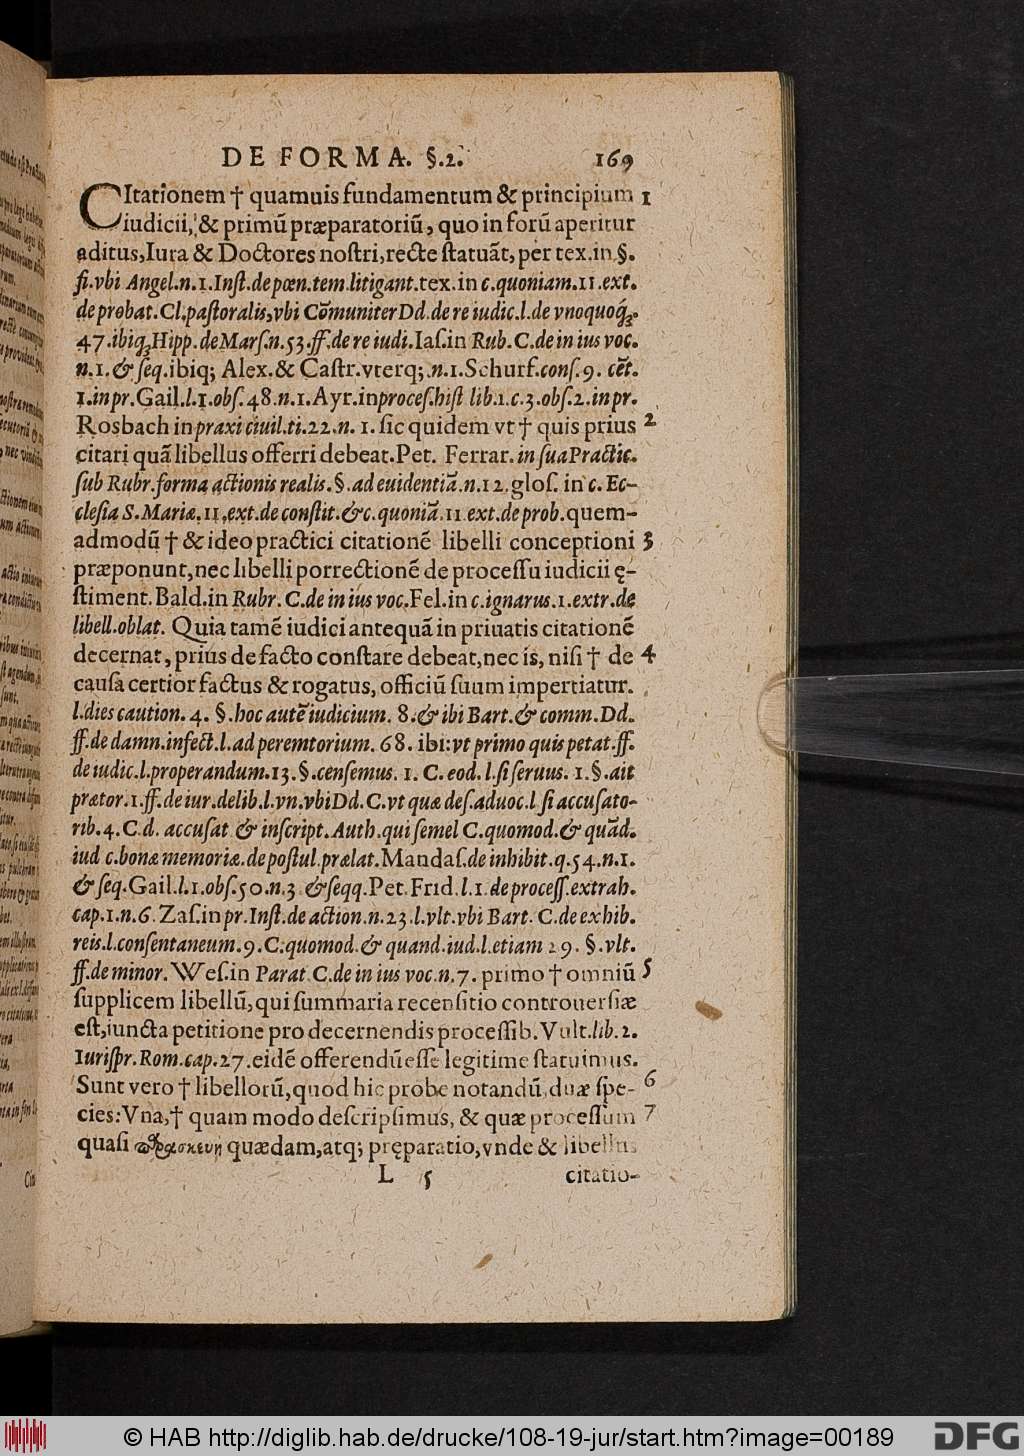 DE FORMA. §.2. 169
CItationem † quamuis fundamentum & principium 1
iudicii, & primũ præparatoriũ, quo in forũ aperitur
aditus, Iura & Doctores nostri, recte statuãt, per tex. in §.
si. vbi Angel. n. 1. Inst. de pœn. tem. litigant. tex. in c. quoniam. 11. ext.
de probat. Cl. pastoralis, vbi Cõmuniter Dd. de re iudic. l. de vnoquoq́;.
47. ibiq́; Hipp. de Mars. n. 53. ff. de re iudi. Ias. in Rub. C. de in ius voc.
n. 1. & seq. ibiq; Alex. & Castr. vterq;. n. 1. Schurf. cons. 9. cẽt.
1. in pr. Gail. l. 1. obs. 48. n. 1. Ayr. in proces. hist lib. 1. c. 3. obs. 2. in pr.
Rosbach in praxi ciuil. ti. 22. n. 1. sic quidem vt † quis prius 2
citari quã libellus offerri debeat. Pet. Ferrar. in sua Practic.
sub Rubr. forma actionis realis. §. ad euidentiã. n. 12. glos. in c. Ec-
clesia S. Mariæ. 11. ext. de constit. & c. quoniã. 11 ext. de prob. quem-
admodũ † & ideo practici citationẽ libelli conceptioni 3
præponunt, nec libelli porrectionẽ de processu iudicii ę-
stiment. Bald. in Rubr. C. de in ius voc. Fel. in c. ignarus. 1. extr. de
libell. oblat. Quia tamẽ iudici antequã in priuatis citationẽ
decernat, prius de facto constare debeat, nec is, nisi † de 4
causa certior factus & rogatus, officiũ suum impertiatur.
l. dies caution. 4. §. hoc autẽ iudicium. 8. & ibi Bart. & comm. Dd.
ff. de damn. infect. l. ad peremtorium. 68. ibi: vt primo quis petat. ff.
de iudic. l. properandum. 13. §. censemus. 1. C. eod. l. si seruus. 1. §. ait
prætor. 1. ff. de iur. delib. l. vn. vbi Dd. C. vt quæ des. aduoc. l si accusato-
rib. 4. C. d. accusat & inscript. Auth. qui semel C. quomod. & quãd.
iud c. bonæ memoriæ. de postul. prælat. Mandas. de inhibit. q. 54. n. 1.
& seq. Gail. l. 1. obs. 50. n. 3 & seqq. Pet. Frid. l. 1. de process. extrah.
cap. 1. n. 6. Zas. in pr. Inst. de action. n. 23. l. vlt. vbi Bart. C. de exhib.
reis. l. consentaneum. 9. C. quomod. & quand. iud. l. etiam 29. §. vlt.
ff. de minor. Wes. in Parat. C. de in ius voc. n. 7. primo † omniũ 5
supplicem libellũ, qui summaria recensitio controuersiæ
est, iuncta petitione pro decernendis processib. Vult. lib. 2.
Iurispr. Rom. cap. 27. eidẽ offerendũ esse legitime statuimus.
Sunt vero † libellorũ, quod hic probe notandũ, duæ spe- 6
cies: Vna, † quam modo descripsimus, & quæ processum 7
quasi παρασκευὴ quædam, atq; pręparatio, vnde & libellus
L 5 citatio-
© HAB http://diglib.hab.de/drucke/108-19-jur/start.htm?image=00189
DFG